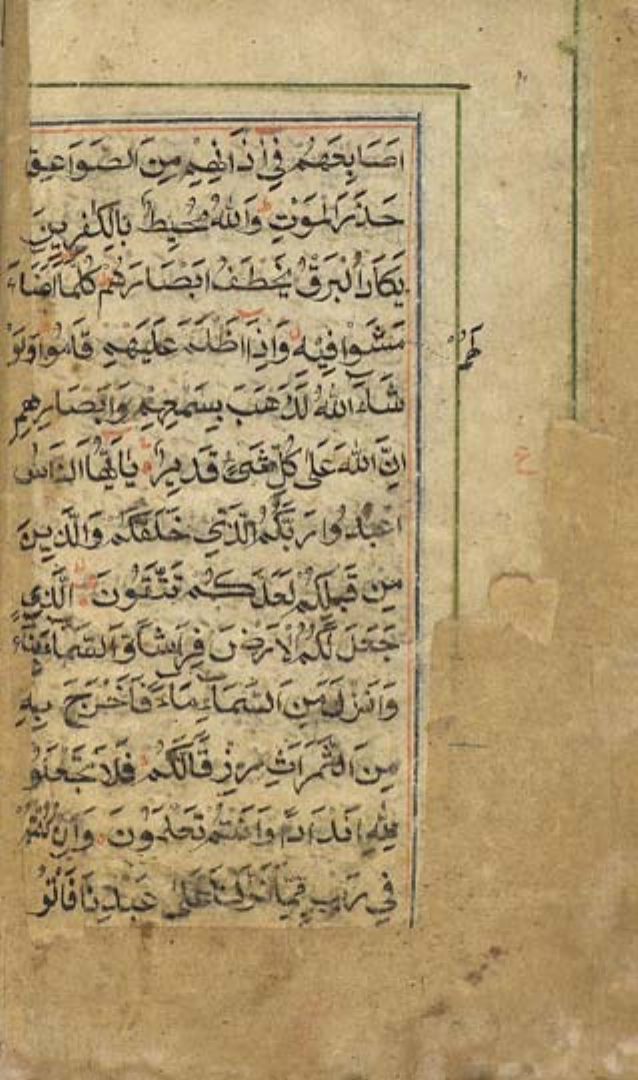 اَصَابِعَهُمْ فِي اٰذَانِهِمْ مِنَ الصَّوَاعِقِ
حَذَرَ الْمَوْتِ وَاللّٰهُ مُحِيْطٌ بِالْكٰفِرِيْنَ
يَكَادُ الْبَرْقُ يَخْطَفُ اَبْصَارَهُمْ كُلَّمَا اَضَاءَ
مَشَوْا فِيْهِ وَاِذَا اَظْلَمَ عَلَيْهِمْ قَامُوا وَلَوْ
لَهُمْ
شَاءَ اللّٰهُ لَذَهَبَ بِسَمْعِهِمْ وَاَبْصَارِهِمْ
اِنَّ اللّٰهَ عَلٰى كُلِّ شَيْءٍ قَدِيْرٌ يَااَيُّهَا النَّاسُ
ع
اعْبُدُوا رَبَّكُمُ الَّذِي خَلَقَكُمْ وَالَّذِيْنَ
مِنْ قَبْلِكُمْ لَعَلَّكُمْ تَتَّقُوْنَ الَّذِي
جَعَلَ لَكُمُ الْاَرْضَ فِرَاشًا وَالسَّمَاءَ بِنَاءً
وَاَنْزَلَ مِنَ السَّمَاءِ مَاءً فَاَخْرَجَ بِهٖ
مِنَ الثَّمَرَاتِ رِزْقًا لَكُمْ فَلَا تَجْعَلُوْ
لِلّٰهِ اَنْدَادًا وَاَنْتُمْ تَعْلَمُوْنَ وَاِنْ كُنْتُمْ
فِي رَيْبٍ مِمَّا نَزَّلْنَا عَلٰى عَبْدِنَا فَأْتُوْ